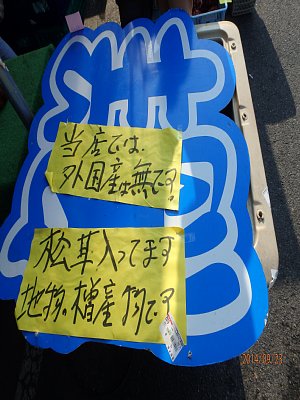 当店では、
外国産は無です。
松茸入ってます
地物。檜産物です
2014.09.23